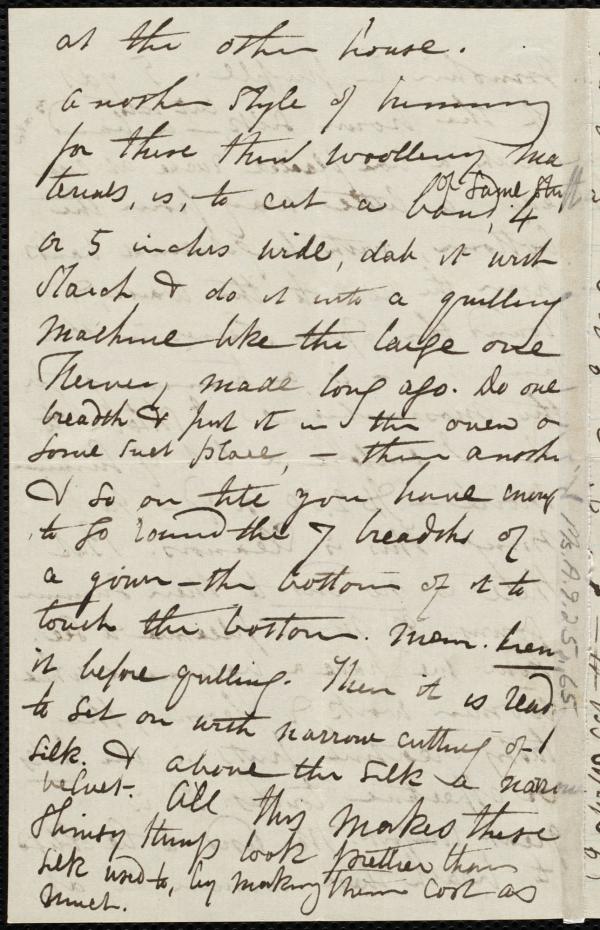 at the other house.
Another style of trimming
for these thin woollen ma
terials, is, to cut a band, of same stuff 4
or 5 inches wide, dab it with
starch & do it into a quilling
machine like the large one
Henry made long ago. Do one
breadth & put it in the oven or
some such place, – then another
& so on till you have enough
to go round the 7 breadths of
a gown – the bottom of it to
touch the bottom. Mem. hem
it before quilling. Then it is ready
to set on with narrow cutting of
silk. & above the silk a narrow
velvet. All this makes these
flimsy things look prettier than
silk used to, by making them cost as
much.
Ms. A.9.2.5